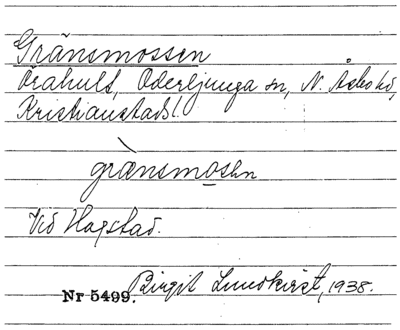 Gränsmossen
Örahult, Oderljunga sn, N. Åsbo hd,
Kristianstads l.
grànsmosn
Vid Hagstad.
Nr 5499. Birgit Lundkvist, 1938.